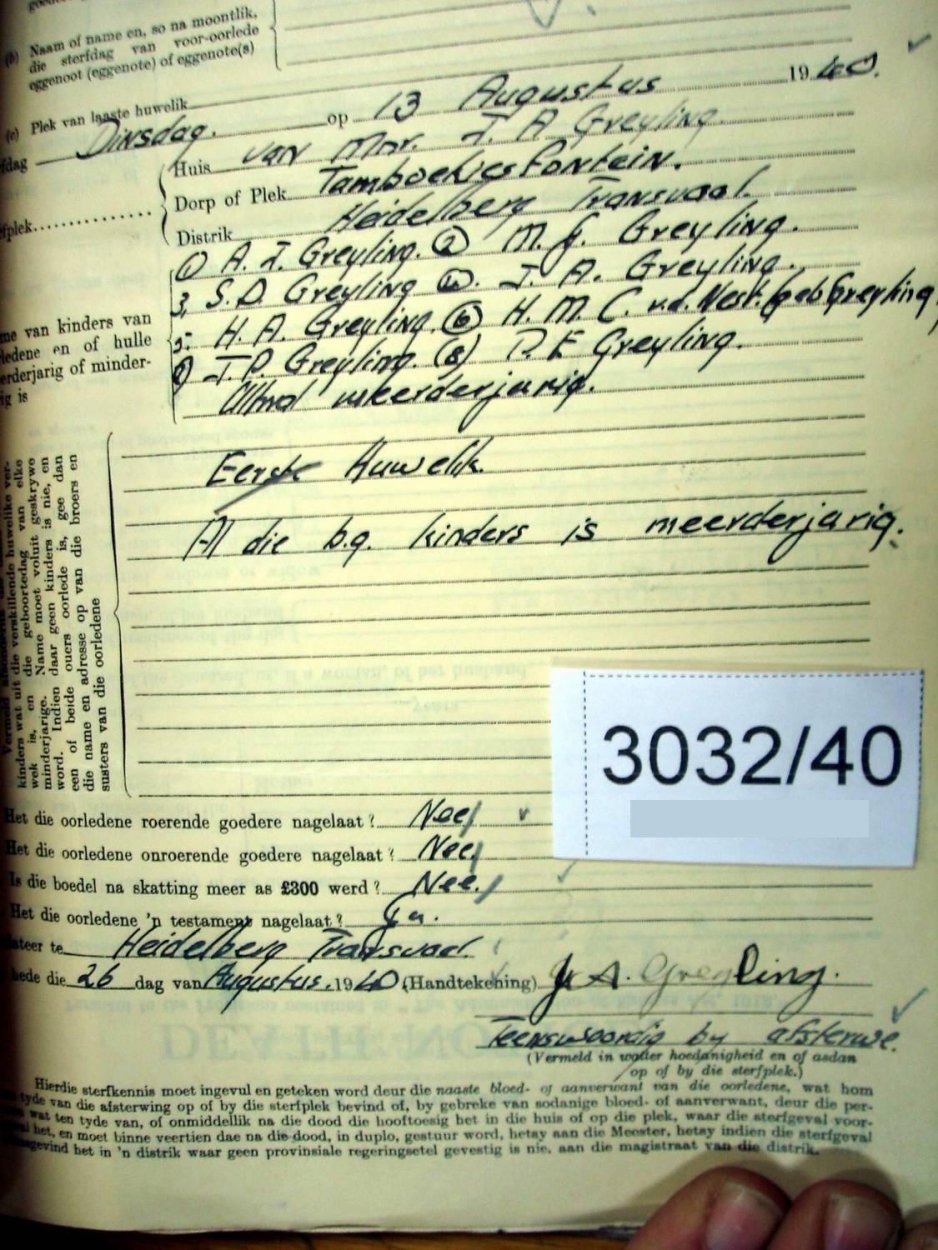 (b) Naam of name en, so na moontlik,
die sterfdag van voor-oorlede
eggenoot (eggenote) of eggenote(s)
(c) Plek van laaste huwelik
Dinsdag. op 13 Augustus 1940.
Huis van Mnr. J. A Greyling
Dorp of Plek Tamboekiesfontein.
Distrik Heidelberg Transvaal.
① A. J. Greyling. ② M. J. Greyling.
3, S. D. Greyling ④. J. A. Greyling.
me van kinders van 5: H. A. Greyling. ⑥ H. M. C. v.d. Nest. geb Greyling,
en of hulle J. P. Greyling. (8) P. E Greyling.
of minder- Almal meerderjarig.
is
Eerste Huwelik.
Al die b.g. kinders is meerderjarig.
kinders wat uit die verskillende huwelike ver-
wek is, en die geboortedag van elke
minderjarige. Name moet voluit geskrywe
word. Indien daar geen kinders is nie, en
een of beide ouers oorlede is, gee dan
die name en adresse op van die broers en
susters van die oorledene
3032/40
Het die oorledene roerende goedere nagelaat? Nee
Het die oorledene onroerende goedere nagelaat? Nee
Is die boedel na skatting meer as £300 werd? Nee.
Het die oorledene 'n testament nagelaat? Ja.
te Heidelberg Transvaal.
hede die 26 dag van Augustus. 1940 (Handtekening) J. A. Greyling.
Teenswoordig by afsterwe.
(Vermeld in watter hoedanigheid en of asdan
op of by die sterfplek.)
Hierdie sterfkennis moet ingevul en geteken word deur die naaste bloed- of aanverwant van die oorledene, wat hom
tyde van die afsterwing op of by die sterfplek bevind of, by gebreke van sodanige bloed- of aanverwant, deur die per-
wat ten tyde van, of onmiddellik na die dood die hooftoesig het in die huis of op die plek, waar die sterfgeval voor-
het, en moet binne veertien dae na die dood, in duplo, gestuur word, hetsy aan die Meester, hetsy indien die sterfgeval
het in 'n distrik waar geen provinsiale regeringsetel gevestig is nie, aan die magistraat van die distrik.